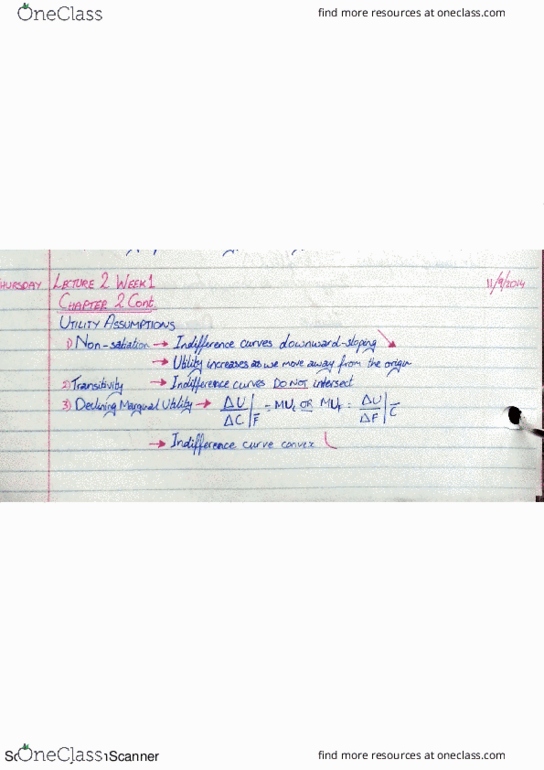 OneClass find more resources at oneclass.com
THURSDAY LECTURE 2 WEEK 1 11/9/2014
CHAPTER 2 Cont.
UTILITY ASSUMPTIONS
1) Non-satiation → Indifference curves downward-sloping
→ Utility increases as we move away from the origin
2) Transitivity → Indifference curves DO NOT intersect
3) Declining Marginal Utility → ΔU/ΔC|F̅ = MUc OR MUF = ΔU/ΔF|C̅
→ Indifference curve convex
OneClass Scanner find more resources at oneclass.com